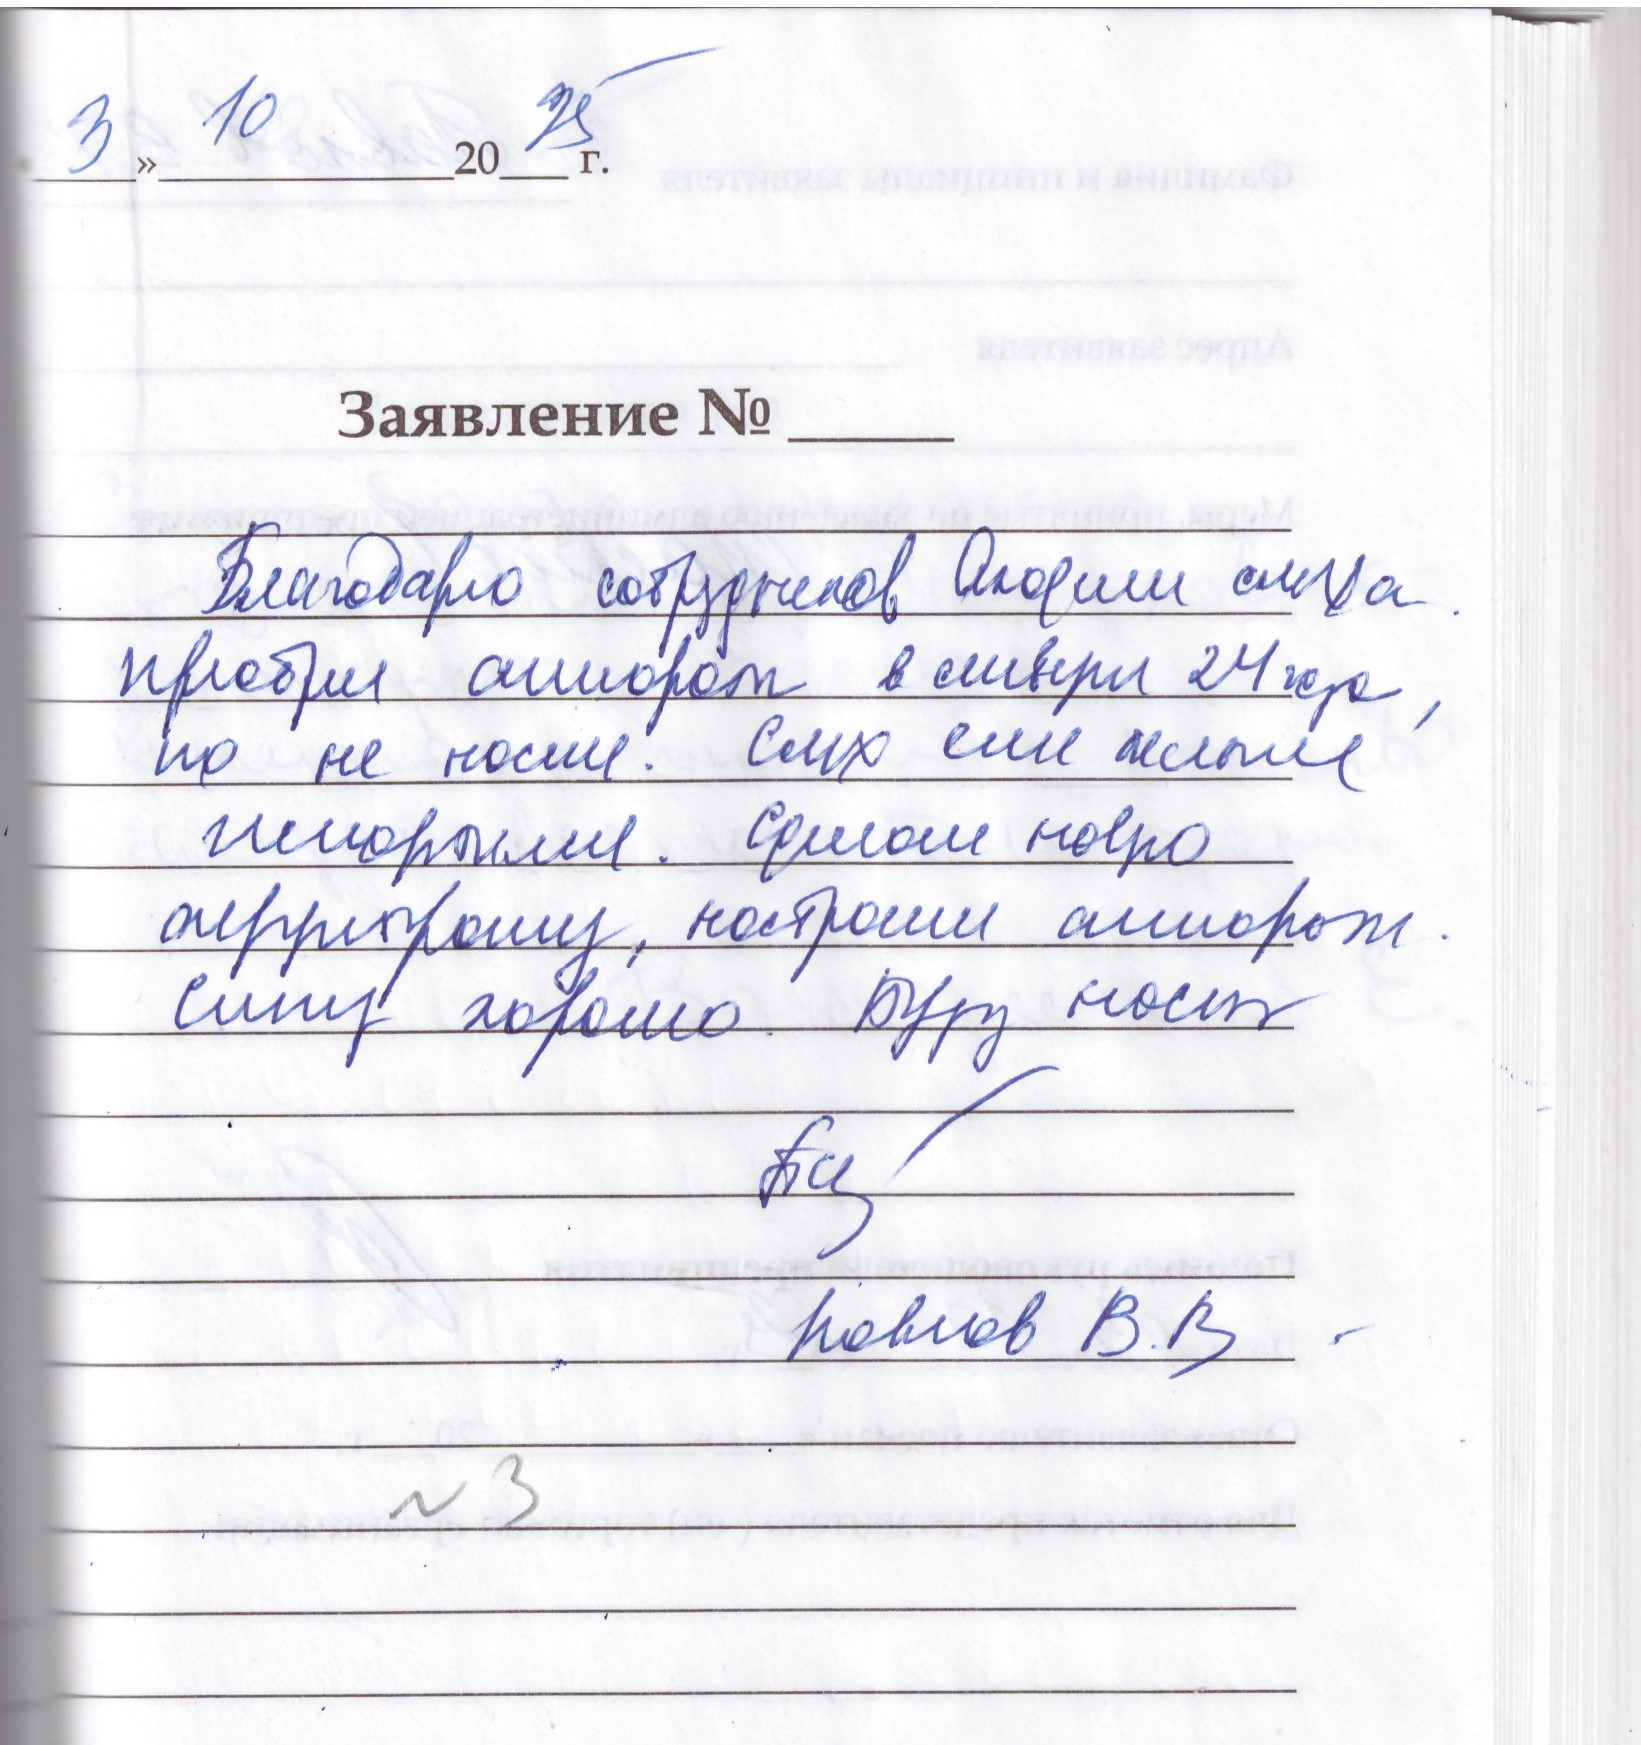 3 » 10 20 25 г.
Заявление № _____
Благодарю сотрудников Академии слуха.
Приобрел аппарат в январе 24 года,
но не носил. Слух стал
Сделали новую
аудиограмму, настроили аппарат.
Слышу хорошо. Буду носить
Павлов В.В.
~ 3